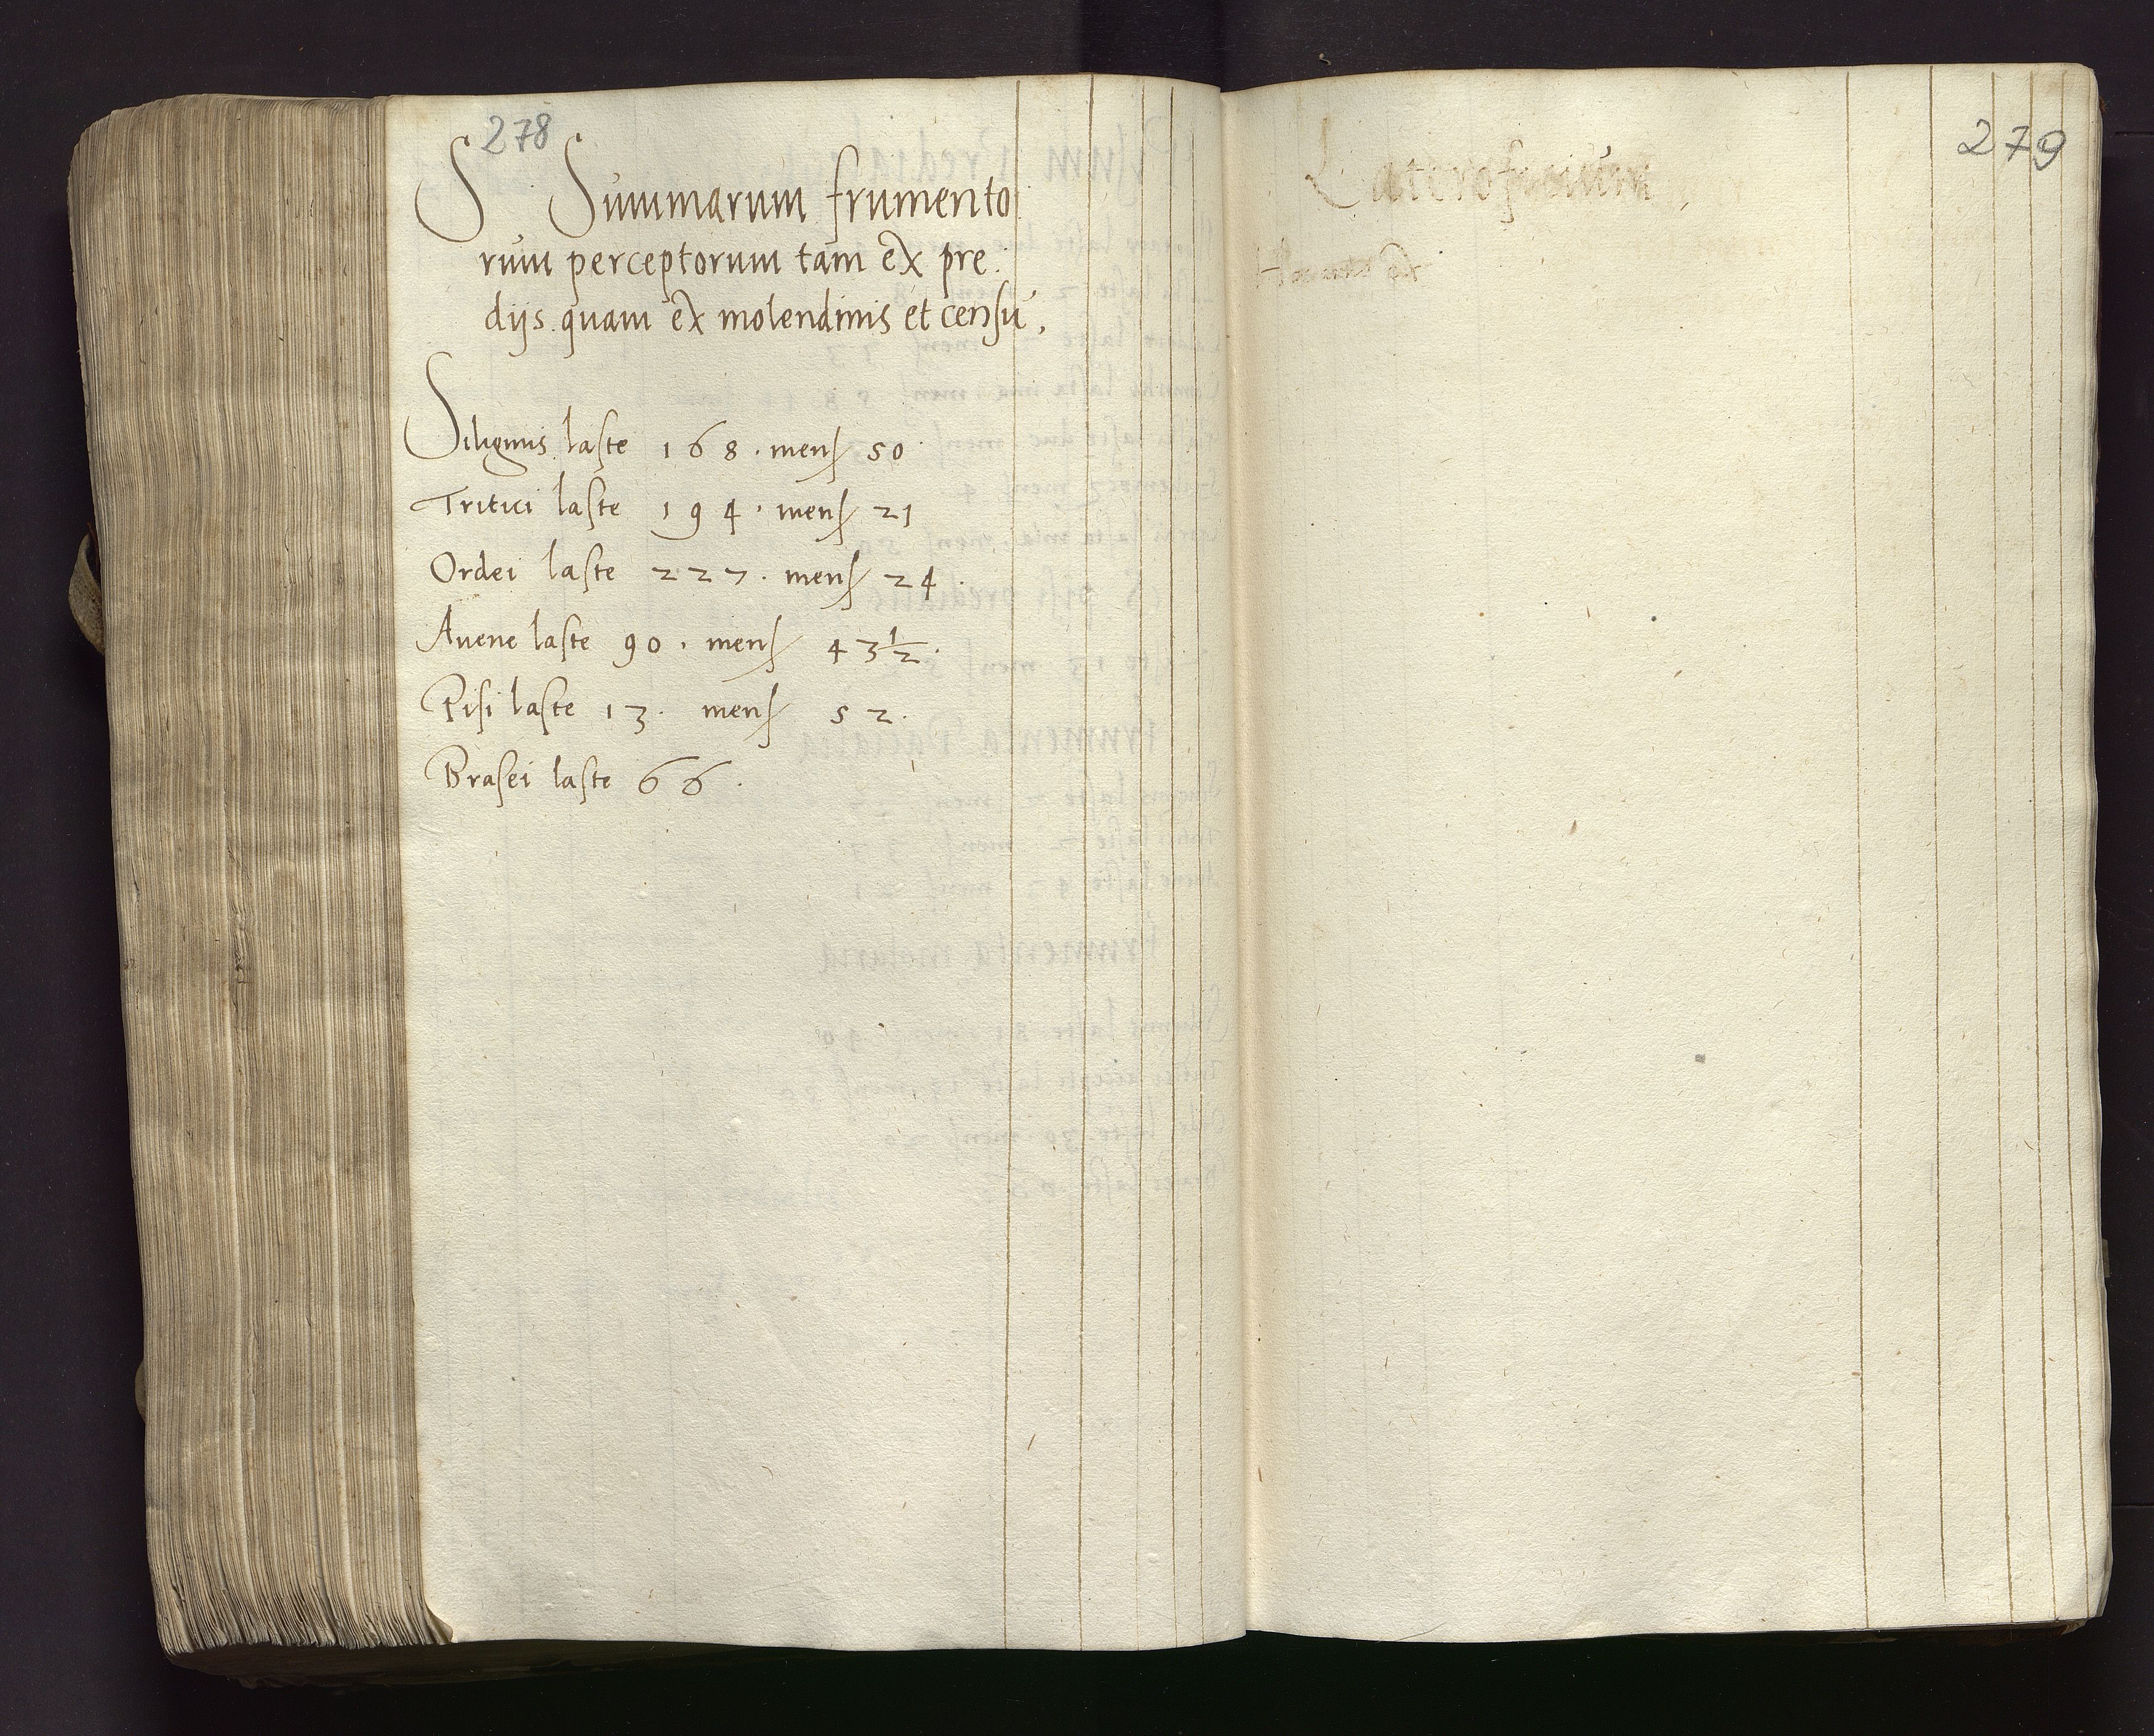 278
S Summarum frumento
rum perceptorum tam ex pre.
dijs quam ex molendinis et censu,
Siliginis laste 168. mens 50
Tritici laste 194. mens 21
Ordei laste 227. mens 24.
Auene laste 90. mens 43½.
Pisi laste 13. mens 52.
Brasei laste 66.
279